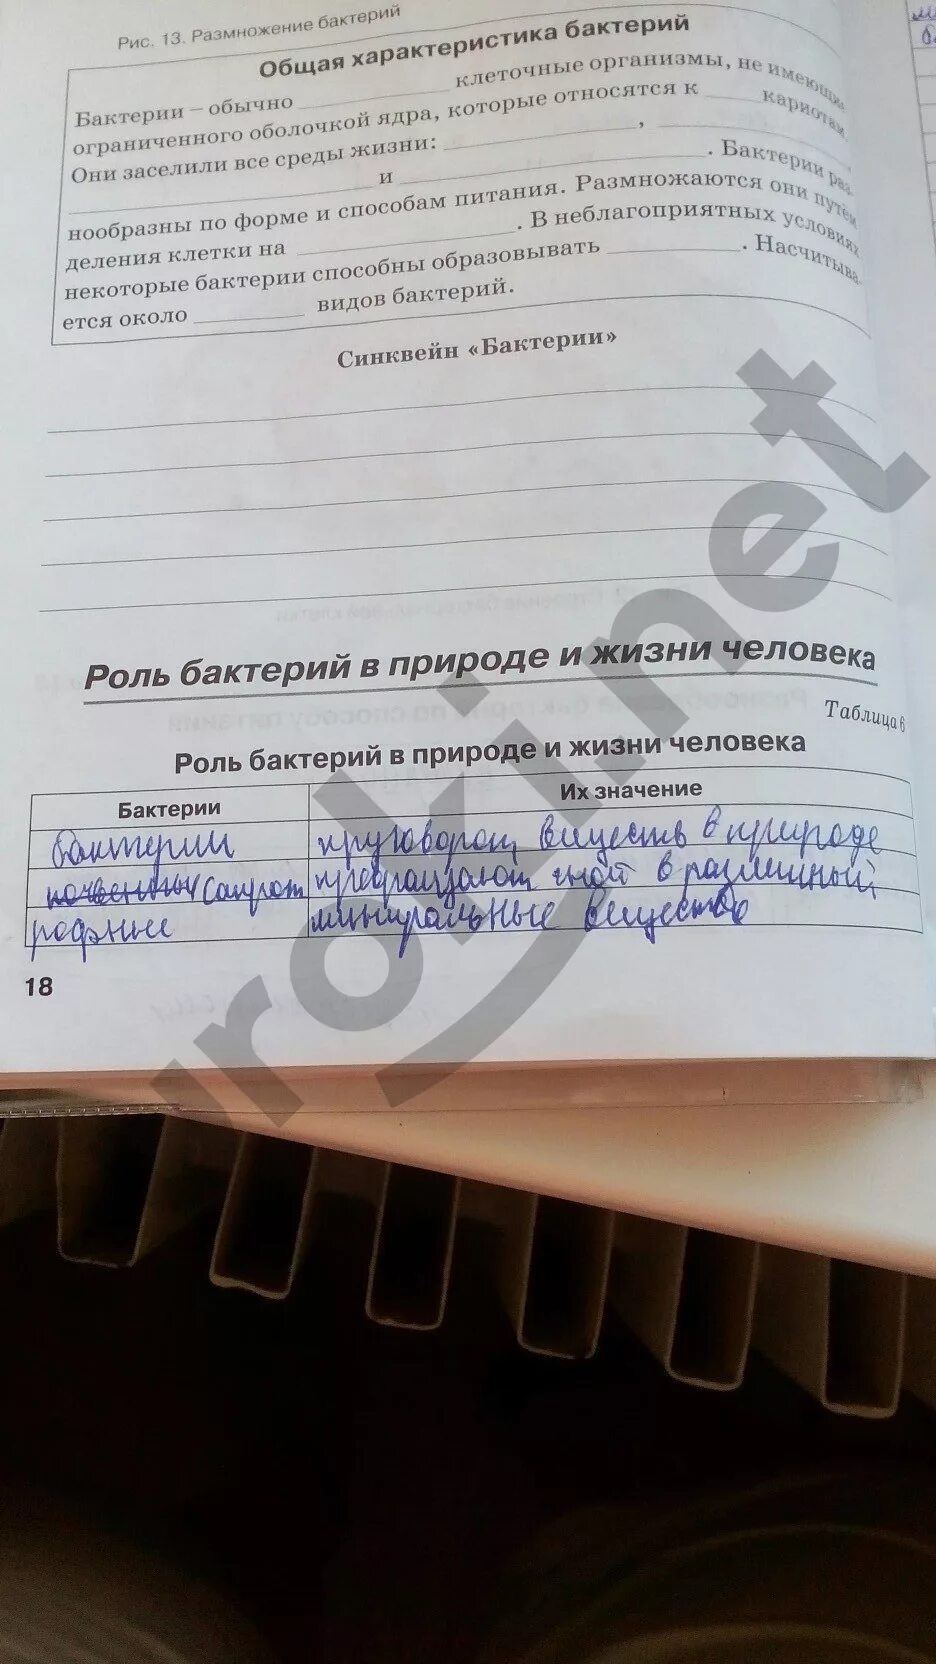 Рис. 13. Размножение бактерий
Общая характеристика бактерий
Бактерии – обычно ____ клеточные организмы, не имеющие
ограниченного оболочкой ядра, которые относятся к ____ кариотам.
Они заселили все среды жизни: ____, ____
____ и ____. Бактерии раз-
нообразны по форме и способам питания. Размножаются они путём
деления клетки на ____. В неблагоприятных условиях
некоторые бактерии способны образовывать ____. Насчитыва-
ется около ____ видов бактерий.
Синквейн «Бактерии»
Роль бактерий в природе и жизни человека
Таблица 6
Роль бактерий в природе и жизни человека
Бактерии Их значение
бактерии круговорот веществ в природе
почвенные Сапрот гной в различный
рофные минеральные вещества
18
uroki.net